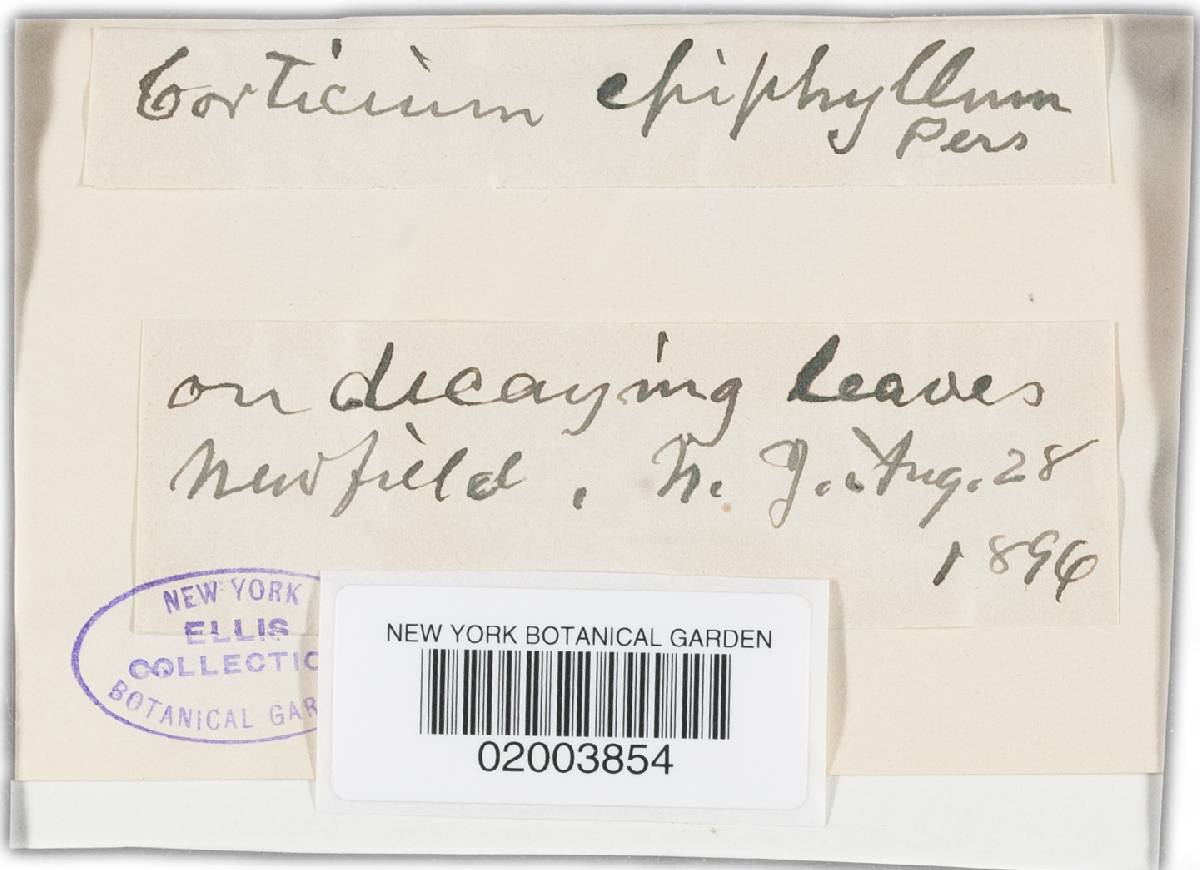 Corticium epiphyllum
Pers
on decaying leaves
Newfield, N. J. Aug. 28
1896
NEW YORK
ELLIS
COLLECTIO
BOTANICAL GAR
NEW YORK BOTANICAL GARDEN
02003854